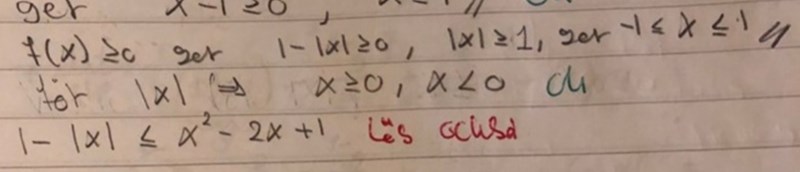 ger x-1≥0,
f(x) ≥0 ger 1-|x|≥0, |x|≥1, ger -1≤ x ≤ 1 //
för |x| ⇒ x≥0, x<0
1-|x| ≤ x² - 2x +1 Lös också